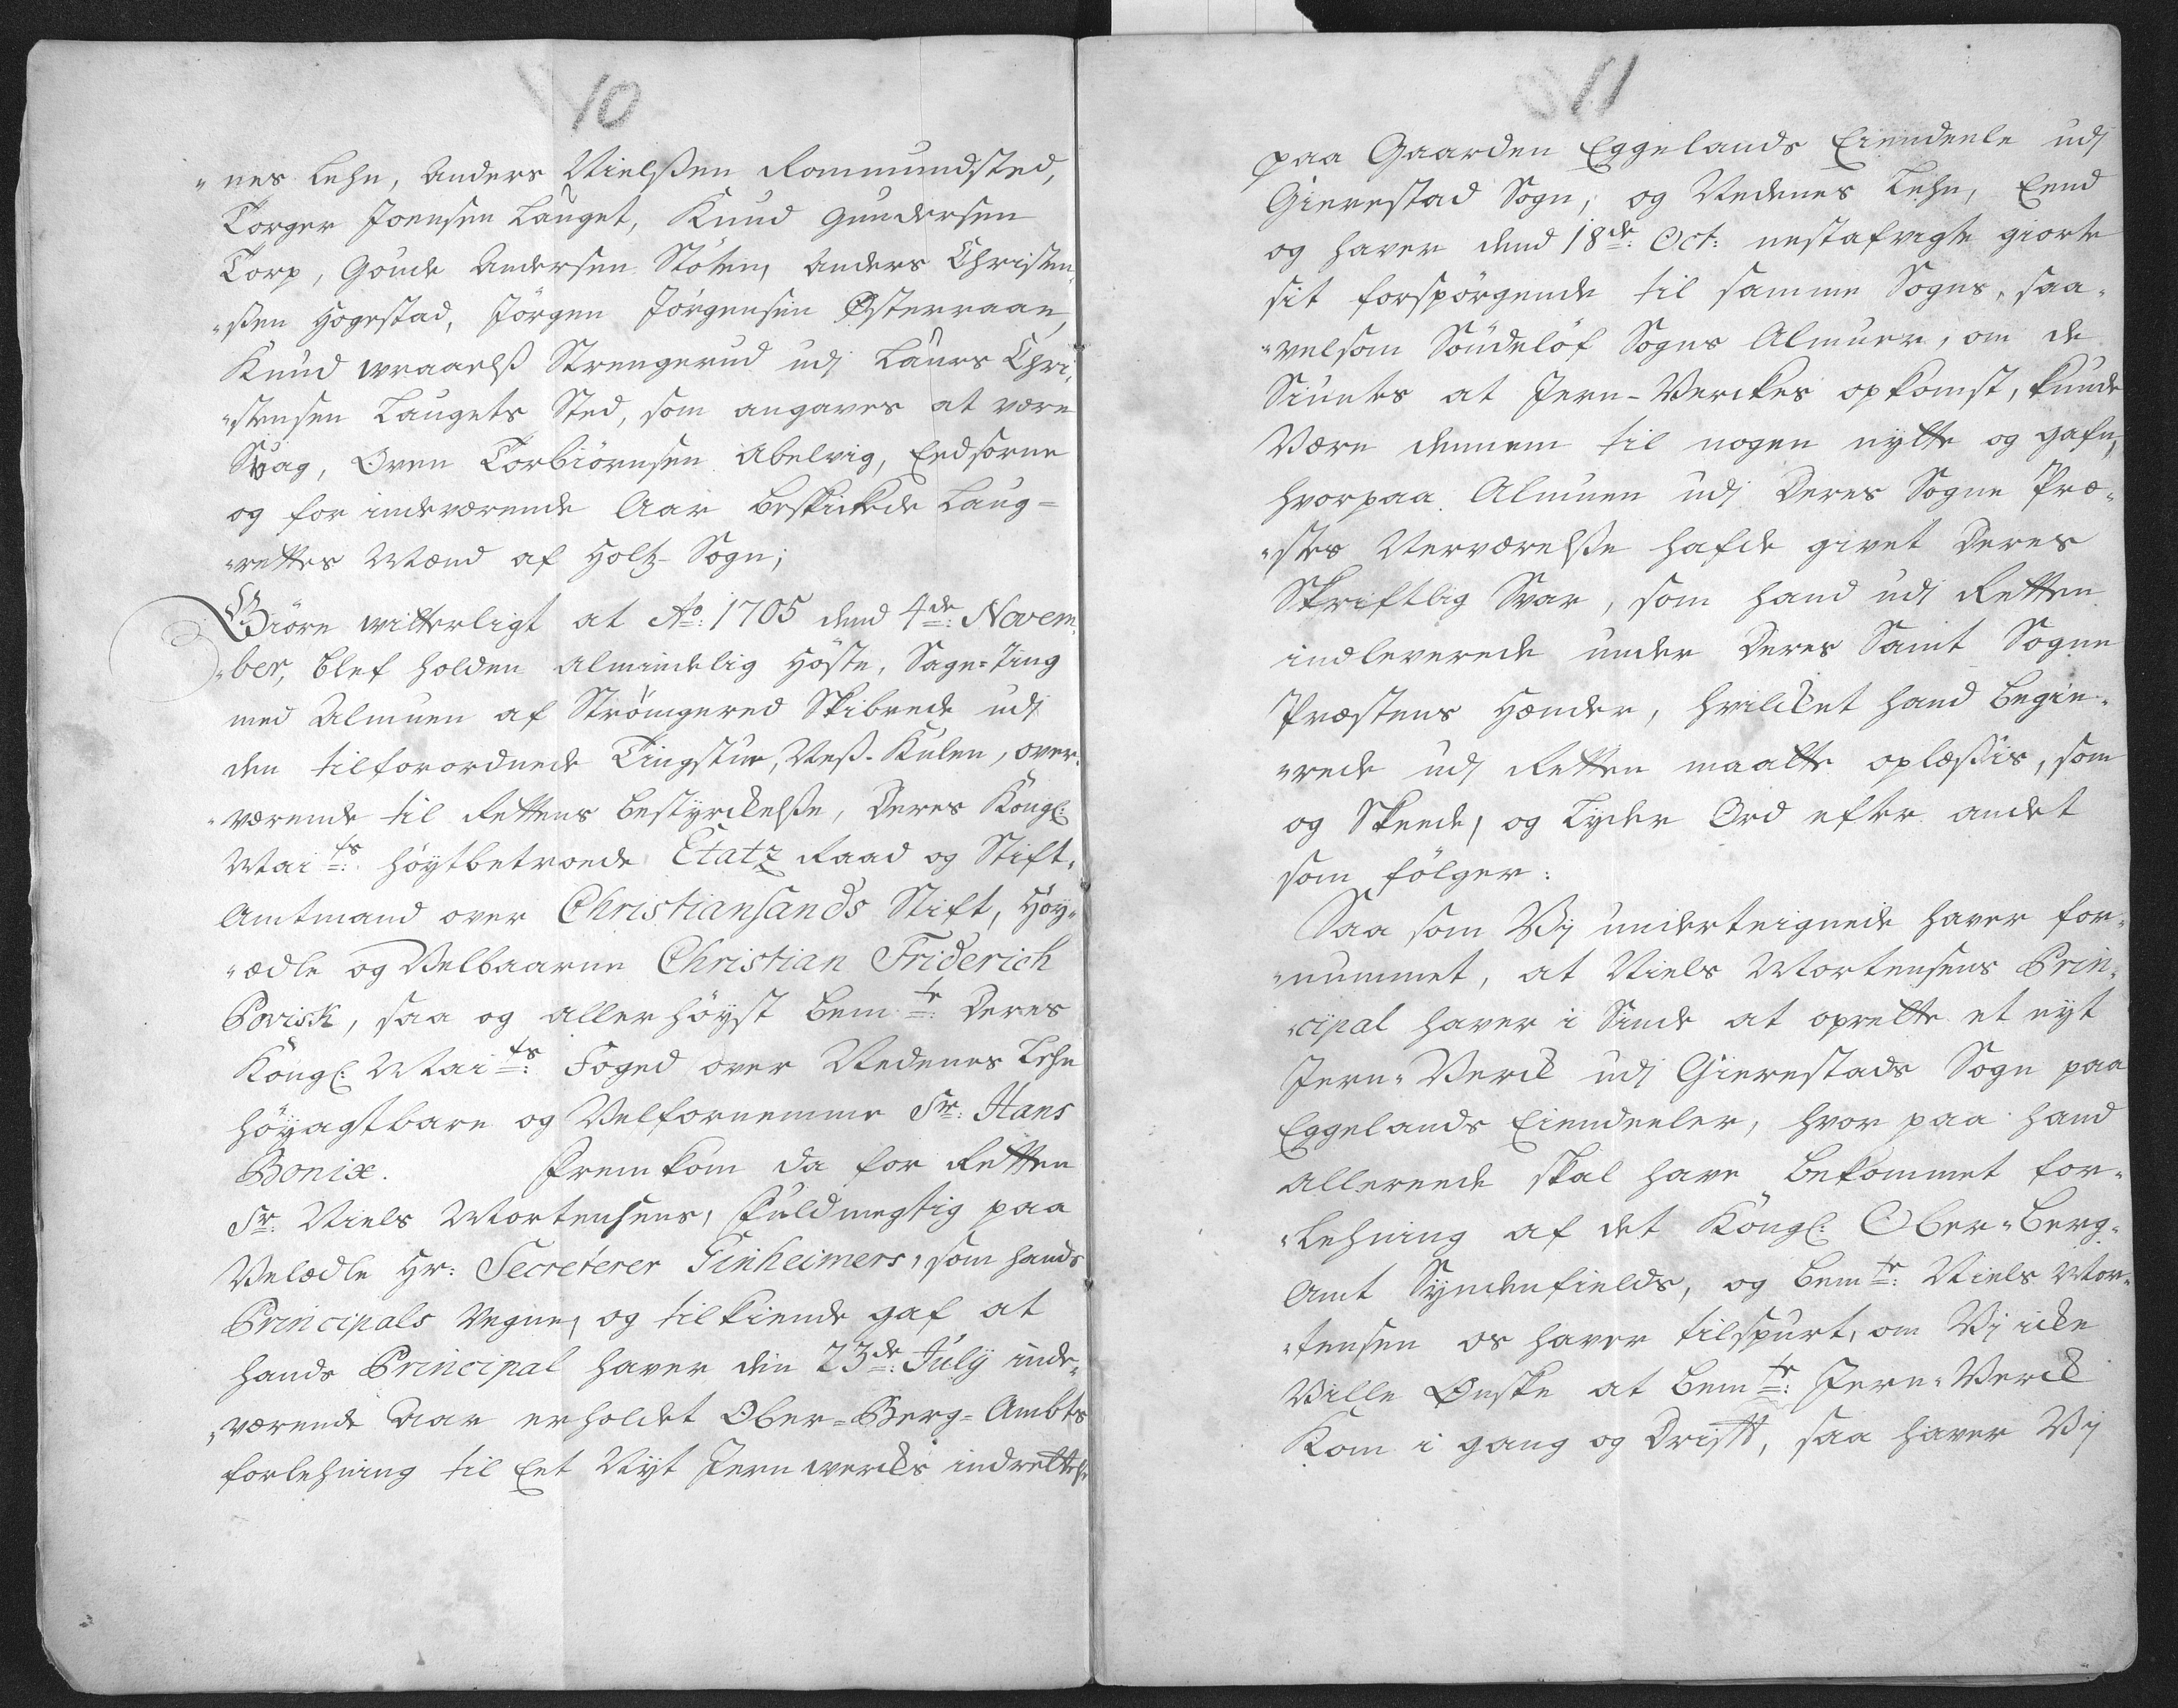 10
"nes Lehn, Anders Nielsßen Rommundsted,
Torger Joensen Lauget, Knud Gundersen
Torp, Goude Andersen Stölen, Anders Christen
"ßen Hogestad, Jörgen Jörgensen Østerraae,
Knud wraaelß Strengerud udj Laurs Chri¸
"stensen Laugets Sted, som angaves at være
Svag, Oven Torbiörnsen Abelvig, Eedsorne
og for indeværende Aar beskickede Laug=
"rettes Mænd af Holtz-Sogn;
Giöre witterligt at Ao: 1705 dend 4de: Novem¸
"ber, blef holden Almindelig Höste, Sage-Ting
med Almuen af Strömgered Skibrede udj
den tilforordnede Tingstue, Neß-Kulen, over¸
"værende til Rettens bestyrckelße, Deres Kongl:
Maits: höytbetroede Etatz Raad og Stift¸
Amtmand over Christiansands Stift, Höy¸
"ædle og Velbaarne Christian Friderich
Povisk, saa og allerhöyst bemte: Deres
Kongl: Maits: Foged over Nedenes Lehn
höyagtbare og Velfornemme Sr: Hans
Bonix. Fremkom da for Retten
Sr: Niels Mortensens, Fuldmegtig paa
Velædle Hr: Secreterer Tinheimers, som hands
Principals Vegne, og tilkiende gaf at
hands Principal haver den 23de: July inde¸
"værende Aar erholdet Ober=Berg=Ambts
forlehning til Eet Nyt Jernwercks indrettelse
11
paa Gaarden Eggelands Eiendeele udj
Gierestad Sogn, og Nedenes Lehn, Eend
og haver dend 18de: Oct: nestafvigte giorte
sit forspörgende til samme Sogns, saa¸
"velsom Söndelöf Sogns Almuer, om de
Siuntes at Jern-Verckes opkomst, kunde
Være dennem til nogen nytte og gafn,
hvorpaa Almuen udj Deres Sogne Præ¸
"stes Nerværelße hafde givet Deres
Skriftlig Svar, som hand udj Retten
indleverede under Deres Samt Sogne
Præstens Hænder, hvilcket hand begie¸
"rede udj Retten maatte oplæßis, som
og Skeede, og Lyder Ord efter andet
som fölger:
Saa som Vj underteignede haver for¸
"nummet, at Niels Mortensens Prin¸
"cipal haver i Sinde at oprette et nyt
Jern-Verck udj Gierestads Sogn paa
Eggelands Eiendeeler, hvor paa hand
allereede skal have bekommet for¸
"Lehning af det Kongl: Ober-Berg¸
Amt Syndenfields, og bemte: Niels Mor¸
"tensen os haver tilspurt, om Vj icke
Ville Ønske at bemte: Jern-Verck
Kom i gang og Drift, saa haver Vj